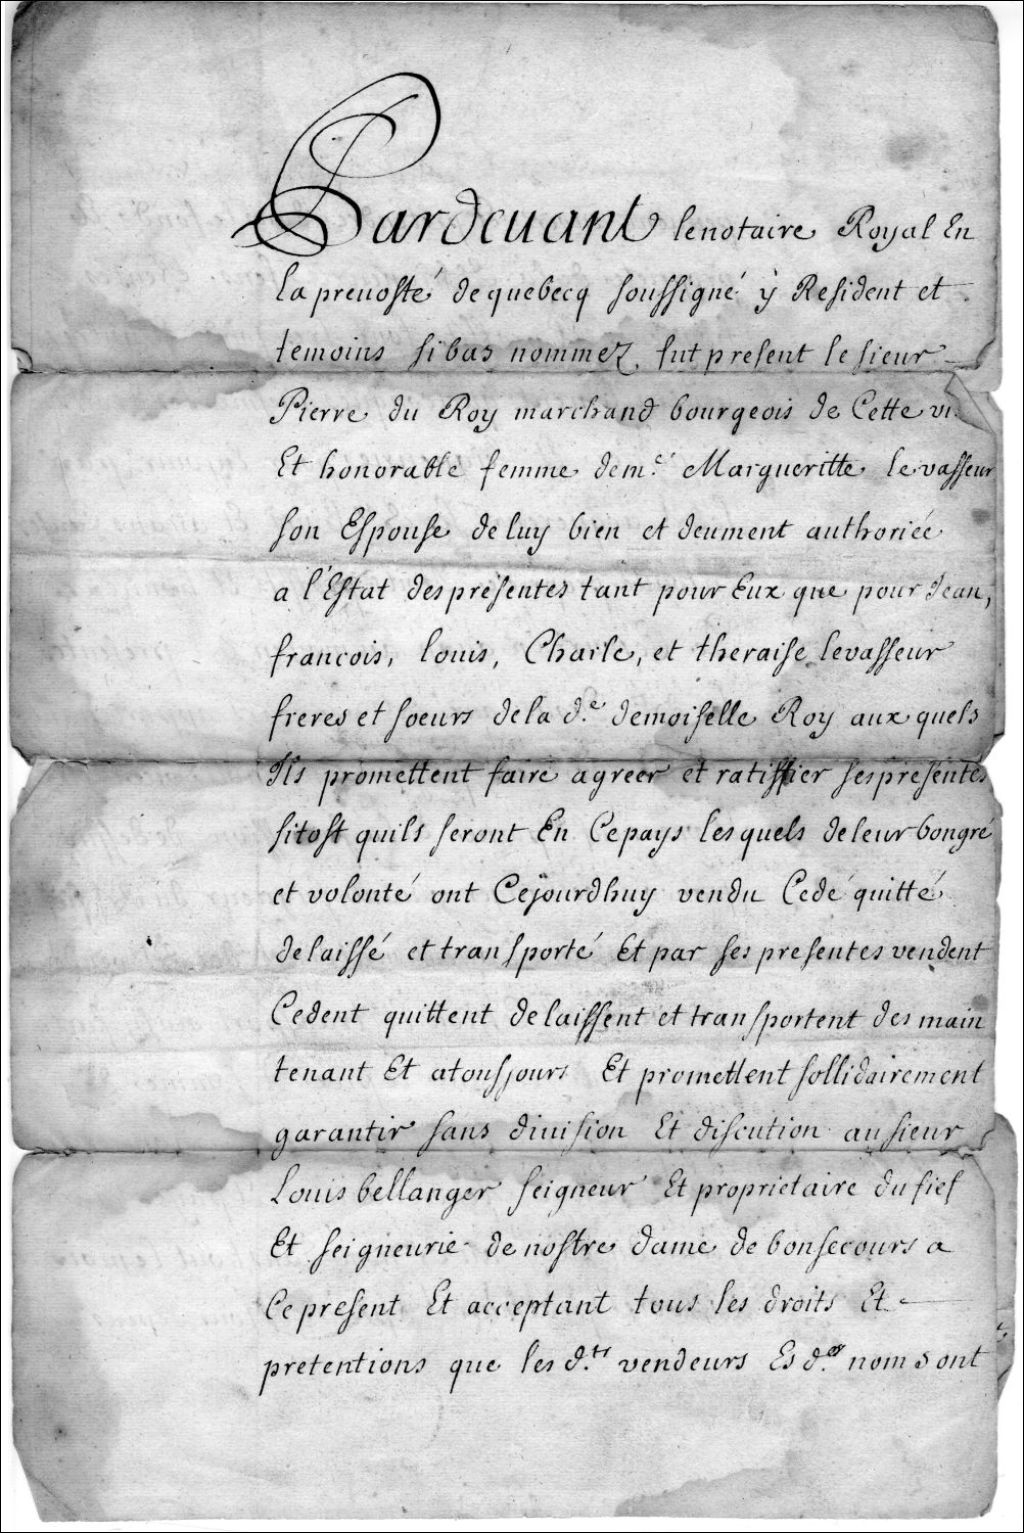 Pardeuant lenotaire Royal En
la preuosté de quebecq soussigné ÿ Resident et
temoins si bas nommez, fut present le sieur
Pierre du Roy marchand bourgeois de Cette
Et honorable femme dem.e Margueritte levasseur
son Espouse de luy bien et deument authoriée
a l'Estat des présentes tant pour Eux que pour Jean,
francois, louis, Charle, et theraise levasseur
freres et soeurs de la d.e demoiselle Roy aux quels
Ils promettent faire agreer et ratiffier ses presentes
sitost quils seront En Ce pays les quels de leur bon gré
et volonté ont Cejourdhuy vendu Cedé quitté
delaissé et transporté Et par ses presentes vendent
Cedent quittent delaissent et transportent des main
tenant Et atousjours Et promettent sollidairement
garantir sans diuision Et discution au sieur
Louis bellanger seigneur Et proprietaire du fief
Et seigneurie de nostre dame de bonsecours a
Ce present Et acceptant tous les droits Et
pretentions que les d.ts vendeurs Es d.s noms ont